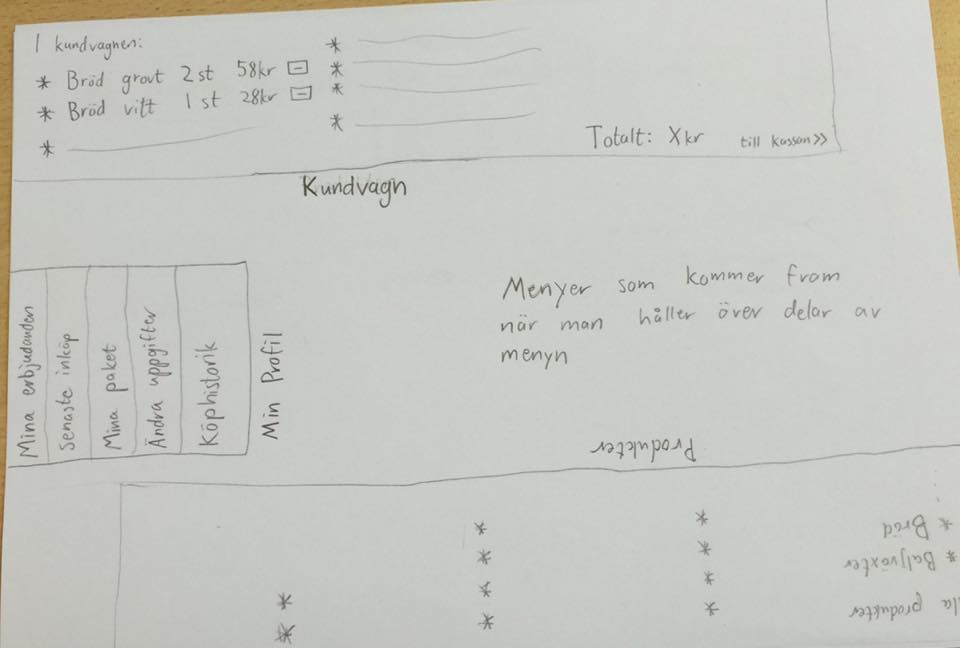 I kundvagnen:
* Bröd grovt 2 st 58kr [-]
* Bröd vitt 1 st 28kr [-]
*
*
*
*
*
Totalt: Xkr till kassan>>
Kundvagn
Mina erbjudanden
Senaste inköp
Mina paket
Ändra uppgifter
Köphistorik
Min Profil
Menyer som kommer fram
när man håller över delar av
menyn
Produkter
produkter
* Baljväxter
* Bröd